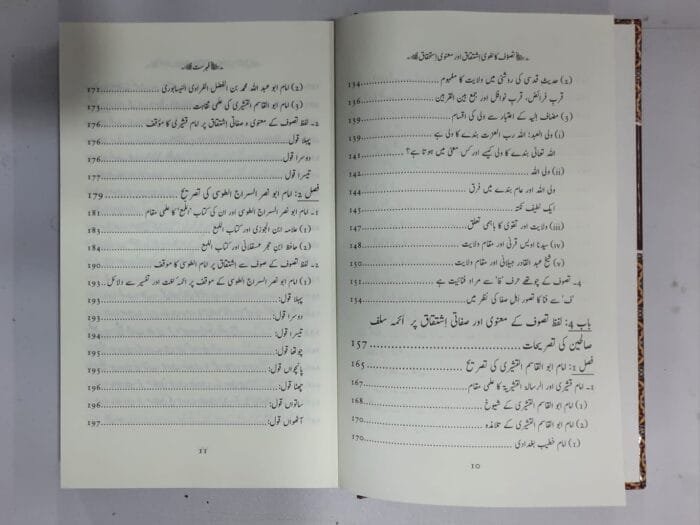 تصوف کا لغوی اشتقاق اور معنوی استحقاق
(۲) حدیث قدسی کی روشنی میں ولایت کا مفہوم 134
قربِ فرائض، قربِ نوافل اور جمع بین القربین 136
(۳) مضاف الیہ کے اعتبار سے ولی کی اقسام 139
(i) ولی العبد: اللہ رب العزت بندے کا ولی ہے 139
اللہ تعالیٰ بندے کا ولی کیسے اور کس معنی میں ہوتا ہے؟ 141
(ii) ولی اللہ 142
ولی اللہ اور عام بندے میں فرق 144
ایک لطیف نکتہ 145
(iii) ولایت اور تقویٰ کا باہمی تعلق 147
(iv) سیدنا اویس قرنی اور مقام ولایت 148
(v) شیخ عبد القادر جیلانی اور مقام ولایت 150
۴۔ تصوف کے چوتھے حرف 'فا' سے مراد فنائیت ہے 151
'ف' سے فنا کا تصور اہل صفا کی نظر میں 154
باب 4: لفظ تصوف کے معنوی اور صفاتی اشتقاق پر ائمہ سلف
صالحین کی تصریحات 157
فصل 1: امام ابو القاسم القشیری کی تصریح 165
۱۔ امام قشیری اور الرسالۃ القشیریۃ کا علمی مقام 167
(۱) امام ابو القاسم القشیری کے شیوخ 168
(۲) امام ابو القاسم القشیری کے تلامذہ 170
(۱) امام خطیب بغدادی 170
10
فہرست
(۲) امام ابو عبد اللہ محمد بن الفضل الفراوی النیسابوری 171
(۳) امام ابو القاسم القشیری کی علمی ثقاہت 174
۲۔ لفظ تصوف کے معنوی و صفاتی اشتقاق پر امام قشیری کا مؤقف 176
پہلا قول: 176
دوسرا قول: 176
تیسرا قول: 177
فصل 2: امام ابو نصر السراج الطوسی کی تصریح 179
۱۔ امام ابو نصر السراج الطوسی اور ان کی کتاب 'اللمع' کا علمی مقام 181
(۱) علامہ ابن الجوزی اور کتاب اللمع 183
(۲) حافظ ابن حجر عسقلانی اور کتاب اللمع 184
۲۔ لفظ تصوف کے صوف سے اشتقاق پر امام الطوسی کا مؤقف 190
(۱) امام ابو نصر السراج الطوسی کے موقف پر ائمہ لغت اور تفسیر سے دلائل 193
پہلا قول: 193
دوسرا قول: 193
تیسرا قول: 194
چوتھا قول: 195
پانچواں قول: 195
چھٹا قول: 196
ساتواں قول: 196
آٹھواں قول: 197
11